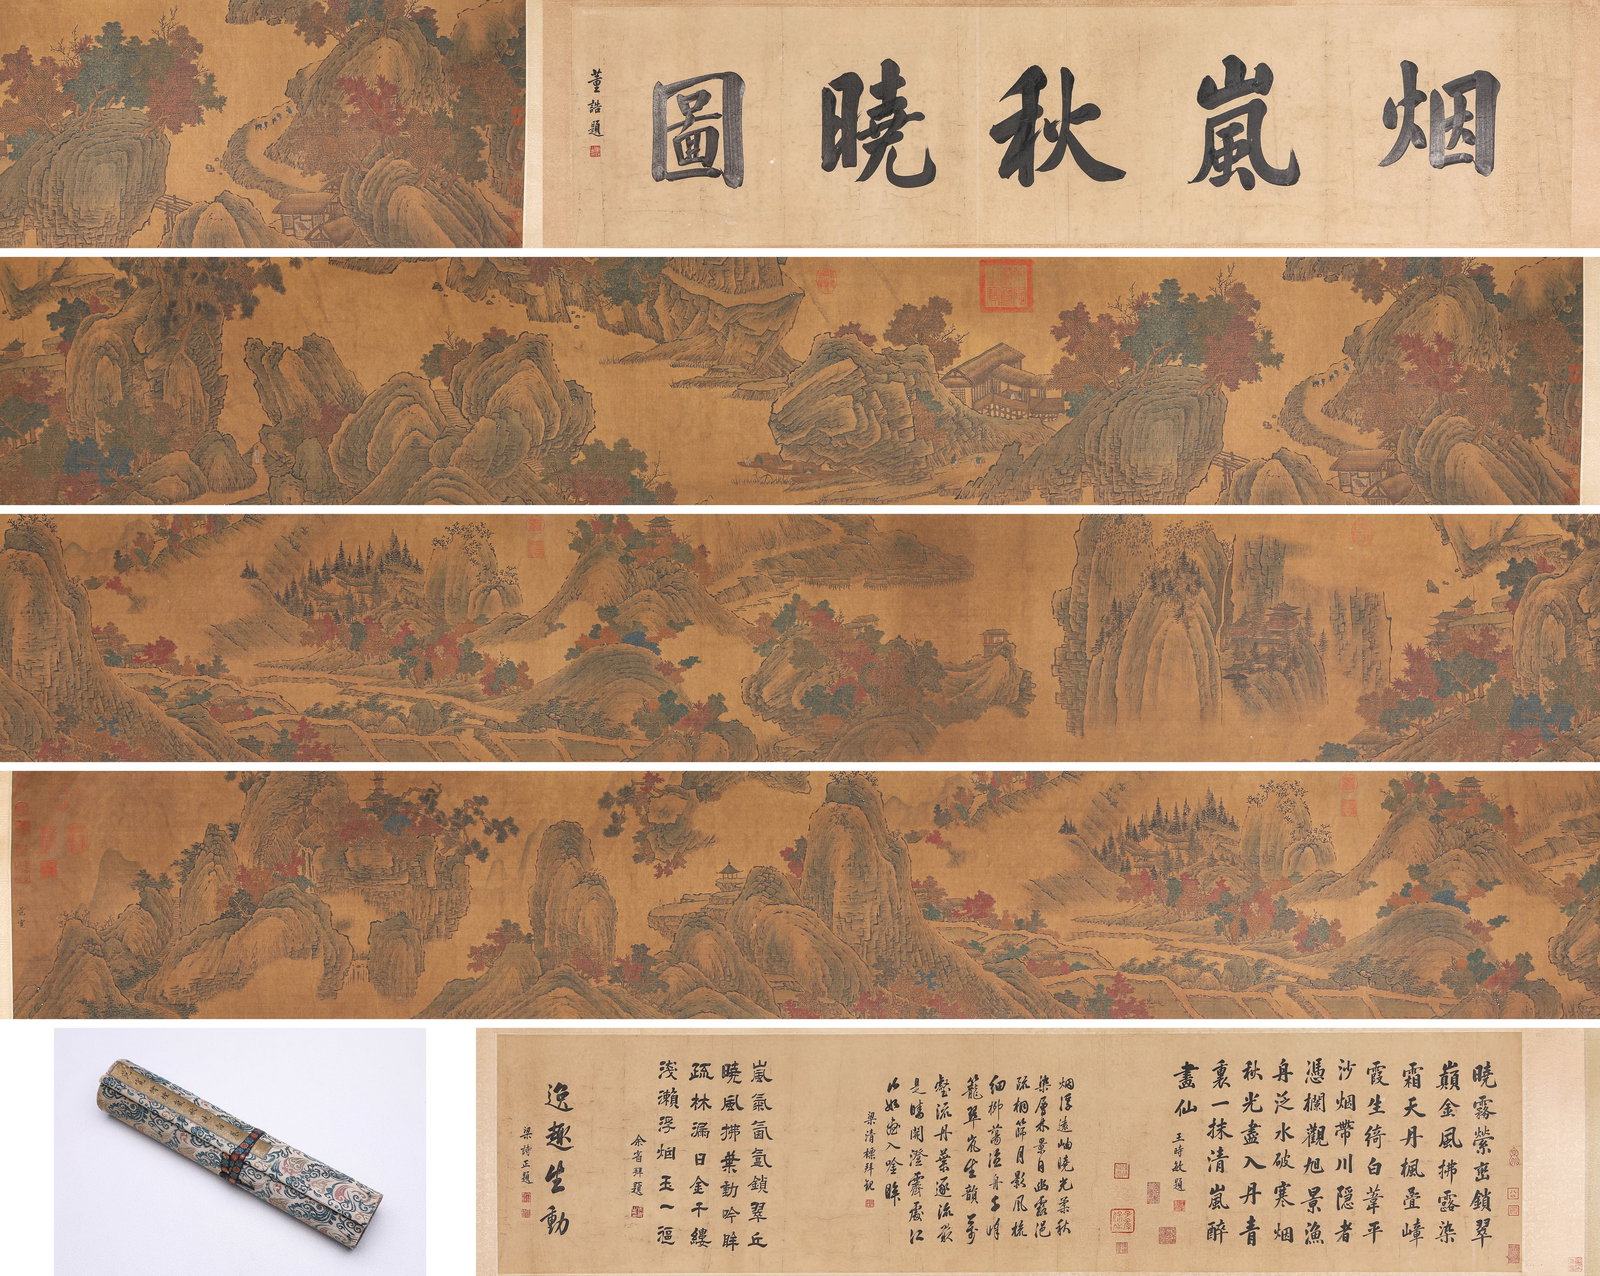 烟嵐秋曉圖
董誥題
曉霧縈巒鎖翠
巔金風拂露染
霜天丹楓疊嶂
霞生綺白葦平
沙烟帶川隱者
憑欄觀旭景漁
舟泛水破寒烟
秋光盡入丹青
裏一抹清嵐醉
畫仙
王時敏題
烟浮遠岫曉光柔秋
染層木景自幽露浥
疏桐篩月影風梳
細柳蕩渔舟千峰
籠翠嵐生韻萬
壑流丹葉逐流最
是晴開澄霽處江
山如畫入吟眸
梁清標拜觀
嵐氣氤氳鎖翠丘
曉風拂葉動吟眸
疏林漏日金千縷
淺瀨浮烟玉一
余省拜題
逸趣生動
梁詩正題